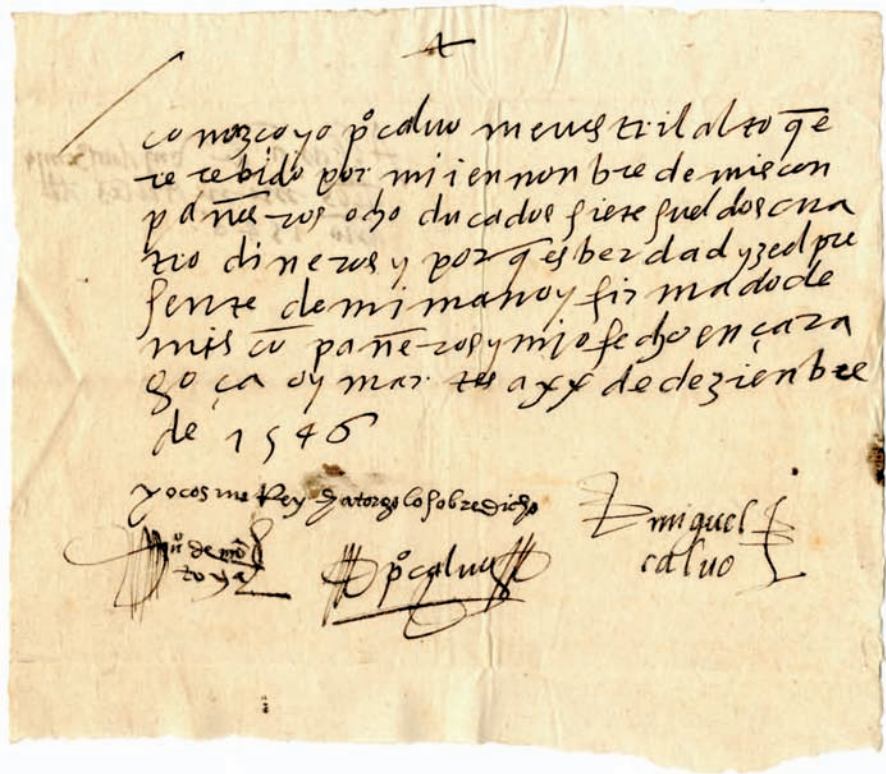 conozco yo po calvo menestril alto q̄e
re cebido por mi i en nonbre de mis con
pañeros ocho ducados siete sueldos cua
tro dineros y por q̄ es berdad yze el pre
sente de mi mano y firmado de
mis cō pañeros y mio fecho en çara
goça oy martes a xx de dezienbre
de 1546
yo cosme Rey atorgo lo sobredicho
miguel
calvo
de mō
toya
po calvo